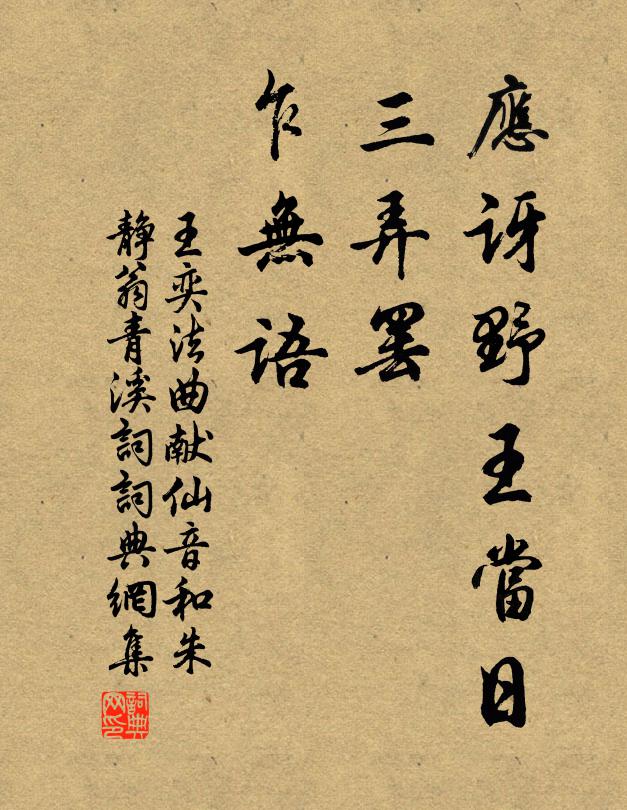 應訝野王當日
三弄罷
乍無語
王奕法曲献仙音和朱
静翁青溪詞詞典網集
詞典
网印